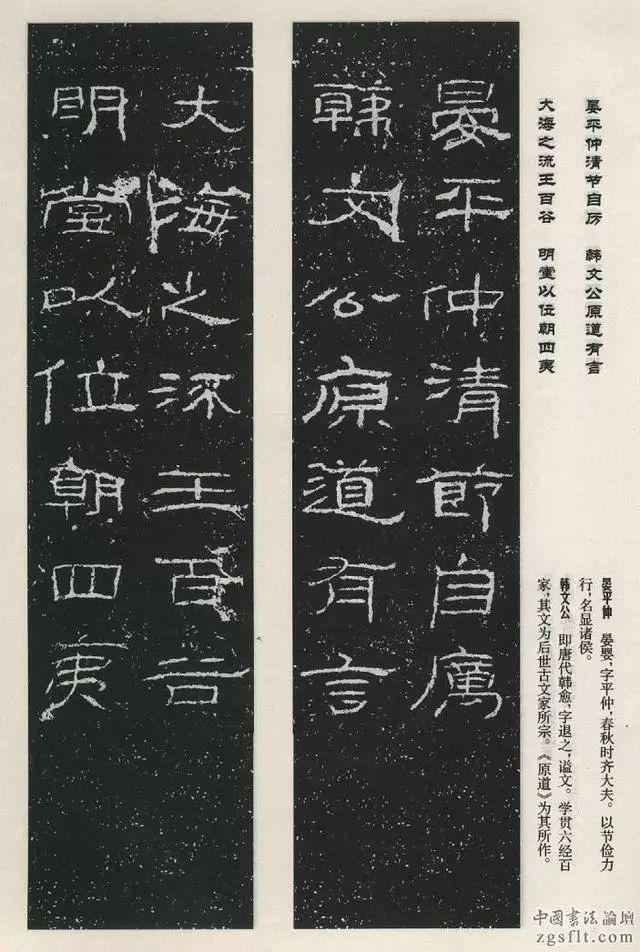 晏平仲清节自厉　韩文公原道有言
大海之流王百谷　明堂以位朝四夷
晏平仲清節自厲
韓文公原道有言
大海之流王百谷
明堂以位朝四夷
晏平仲　晏婴，字平仲，春秋时齐大夫。以节俭力
行，名显诸侯。
韩文公　即唐代韩愈，字退之，谥文。学贯六经百
家，其文为后世古文家所宗。《原道》为其所作。
中國書法論壇
zgsflt.com